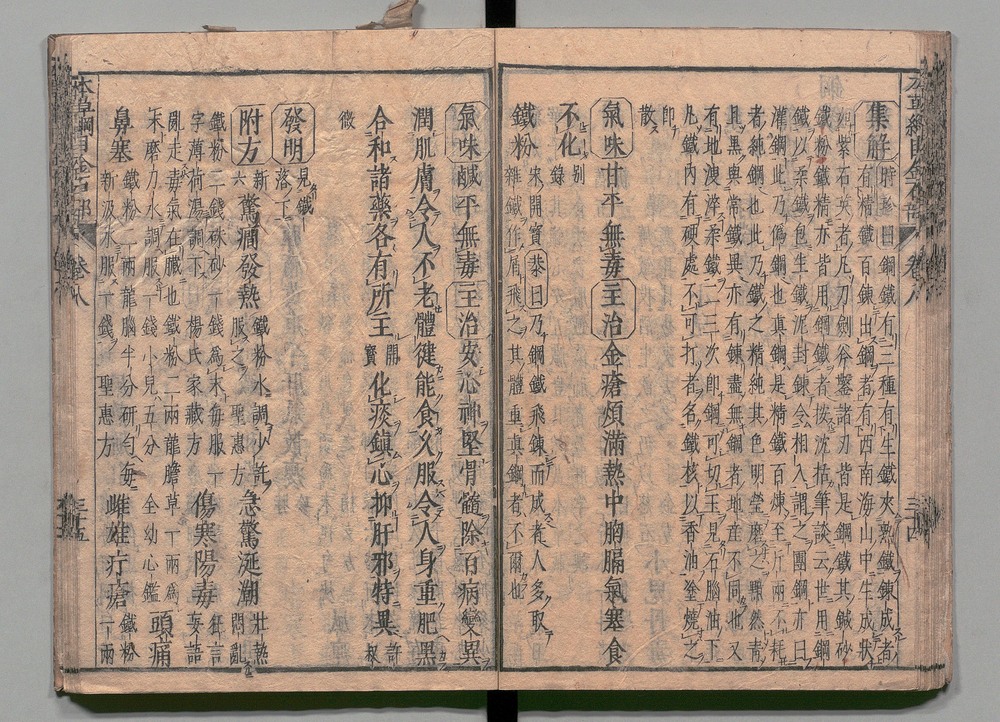 本草綱目金石部 卷八 三十四
集解 時珍曰鋼鐵有三種有生鐵夾熟鐵鍊成者
有精鐵百鍊出鋼者有西南海山中生成狀
如紫石英者凡刀劍斧鑿諸刃皆是鋼鐵其鍼砂
鐵粉鐵精亦皆用鋼鐵者按沈括筆談云世用鋼
鐵以柔鐵包生鐵泥封鍊令相入謂之團鋼亦曰
灌鋼此乃僞鋼也真鋼是精鐵百鍊至斤兩不耗
者純鋼也此乃鐵之精純其色明瑩磨之黯然青
且黑與常鐵異亦有鍊盡無鋼者地産不同也又
有地溲淬柔鐵二三次即鋼可切玉見石腦油下
凡鐵內有硬處不可打者名鐵核以香油塗燒之
即散
氣味甘平無毒主治金瘡煩滿熱中胸膈氣塞食
不化 别錄
鐵粉 宋開寶 恭曰乃鋼鐵飛鍊而成者人多取
雜鐵作屑飛之其體重真鋼者不爾也
氣味鹹平無毒主治安心神堅骨髓除百病變黑
潤肌膚令人不老體健能食久服令人身重肥黑
合和諸藥各有所主 開寶 化痰鎮心抑肝邪特異 許叔
微
發明 見鐵落下
附方 新六 驚癇發熱 鐵粉水調少許服之 聖惠方 急驚涎潮 壯熱悶亂
鐵粉二錢硃砂一錢爲末每服一
字薄荷湯調下 楊氏家藏方 傷寒陽毒 狂言妄語
亂走毒氣在臟也鐵粉二兩龍膽草一兩爲
末磨刀水調服一錢小兒五分 全幼心鑑 頭痛
鼻塞 鐵粉二兩龍腦半分研勻每
新汲水服一錢 聖惠方 雌雄疔瘡 鐵粉一兩
本草綱目金石部 卷八 三十五